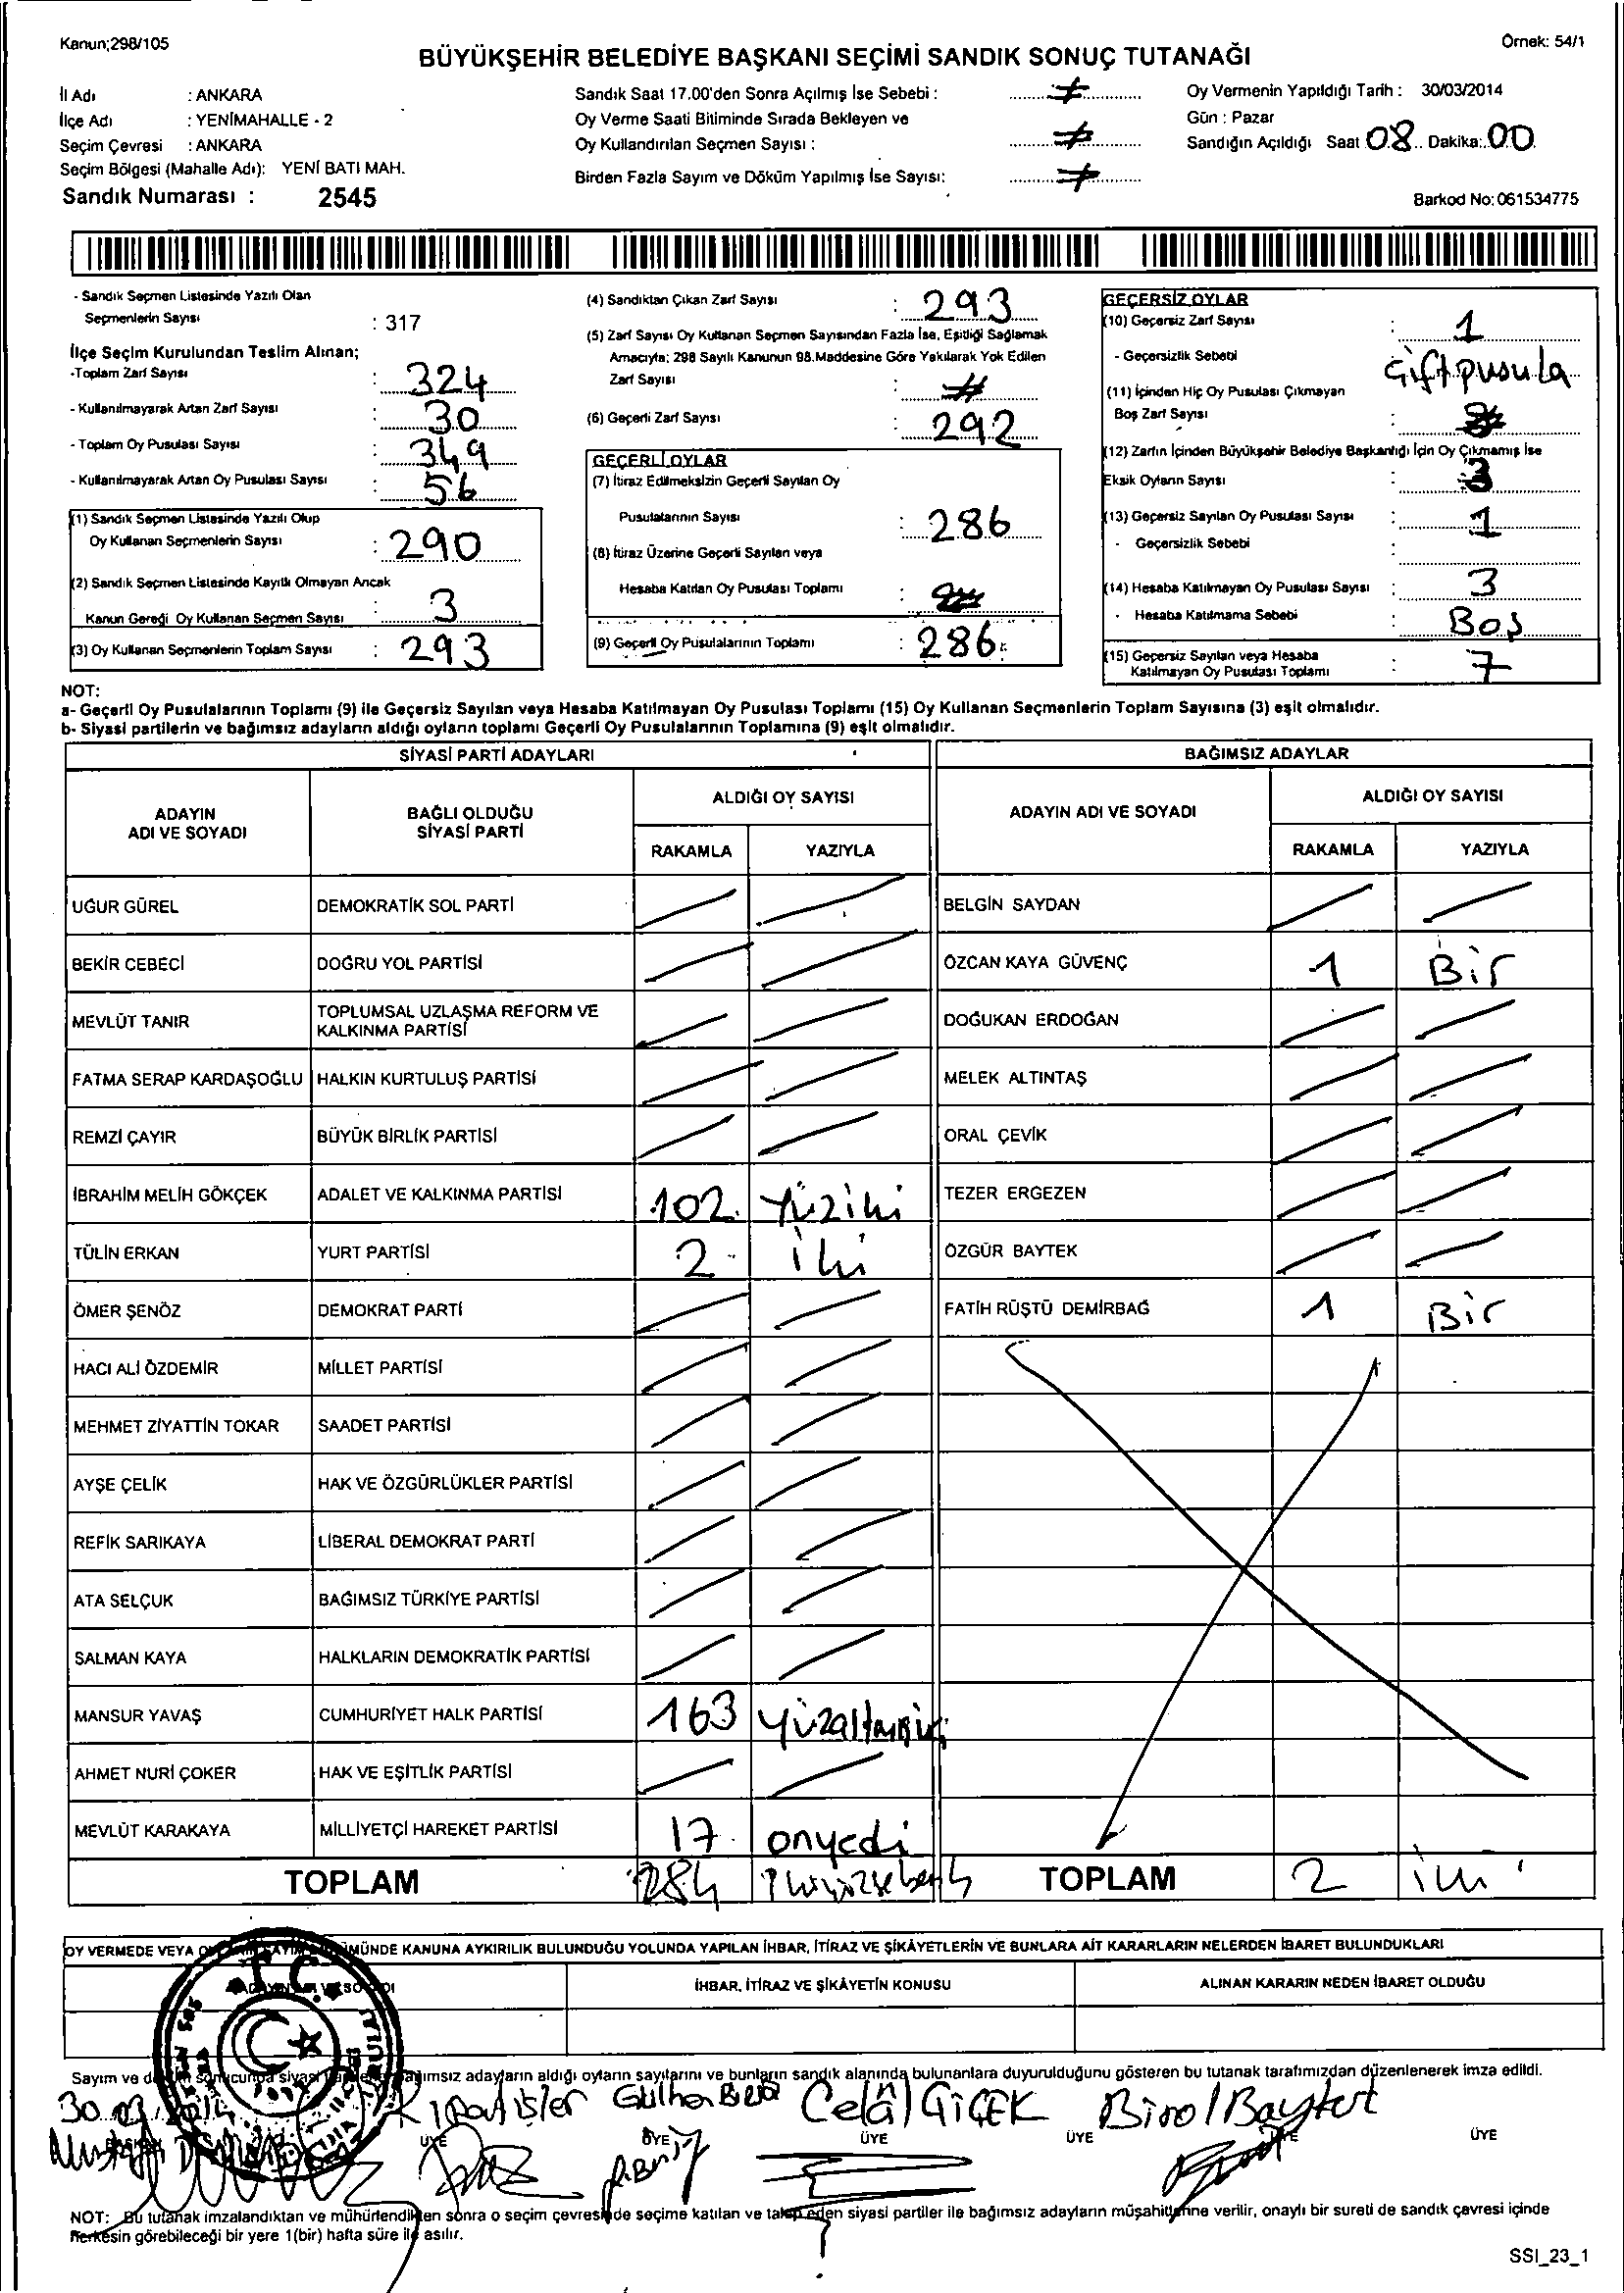 Kanun;298/105
Örnek: 54/1
BÜYÜKŞEHİR BELEDİYE BAŞKANI SEÇİMİ SANDIK SONUÇ TUTANAĞI
İl Adı : ANKARA
İlçe Adı : YENİMAHALLE - 2
Seçim Çevresi : ANKARA
Seçim Bölgesi (Mahalle Adı): YENİ BATI MAH.
Sandık Numarası : 2545
Sandık Saat 17.00'den Sonra Açılmış İse Sebebi :
Oy Verme Saati Bitiminde Sırada Bekleyen ve
Oy Kullandırılan Seçmen Sayısı :
Birden Fazla Sayım ve Döküm Yapılmış İse Sayısı:
Oy Vermenin Yapıldığı Tarih : 30/03/2014
Gün : Pazar
Sandığın Açıldığı Saat 08 Dakika: 00
Barkod No: 061534775
- Sandık Seçmen Listesinde Yazılı Olan
Seçmenlerin Sayısı : 317
İlçe Seçim Kurulundan Teslim Alınan;
-Toplam Zarf Sayısı : 324
- Kullanılmayarak Artan Zarf Sayısı : 30
- Toplam Oy Pusulası Sayısı : 349
- Kullanılmayarak Artan Oy Pusulası Sayısı : 56
(1) Sandık Seçmen Listesinde Yazılı Olup
Oy Kullanan Seçmenlerin Sayısı : 290
(2) Sandık Seçmen Listesinde Kayıtlı Olmayan Ancak
Kanun Gereği Oy Kullanan Seçmen Sayısı : 3
(3) Oy Kullanan Seçmenlerin Toplam Sayısı : 293
(4) Sandıktan Çıkan Zarf Sayısı : 293
(5) Zarf Sayısı Oy Kullanan Seçmen Sayısından Fazla İse, Eşitliği Sağlamak
Amacıyla; 298 Sayılı Kanunun 98.Maddesine Göre Yakılarak Yok Edilen
Zarf Sayısı :
(6) Geçerli Zarf Sayısı : 292
GEÇERLİ OYLAR
(7) İtiraz Edilmeksizin Geçerli Sayılan Oy
Pusulalarının Sayısı : 286
(8) İtiraz Üzerine Geçerli Sayılan veya
Hesaba Katılan Oy Pusulası Toplamı :
(9) Geçerli Oy Pusulalarının Toplamı : 286
GEÇERSİZ OYLAR
(10) Geçersiz Zarf Sayısı : 1
- Geçersizlik Sebebi Çift pusula
(11) İçinden Hiç Oy Pusulası Çıkmayan
Boş Zarf Sayısı :
(12) Zarfın İçinden Büyükşehir Belediye Başkanlığı İçin Oy Çıkmamış İse
Eksik Oyların Sayısı : 3
(13) Geçersiz Sayılan Oy Pusulası Sayısı : 1
- Geçersizlik Sebebi :
(14) Hesaba Katılmayan Oy Pusulası Sayısı : 3
- Hesaba Katılmama Sebebi : Boş
(15) Geçersiz Sayılan veya Hesaba
Katılmayan Oy Pusulası Toplamı : 7
NOT:
a- Geçerli Oy Pusulalarının Toplamı (9) ile Geçersiz Sayılan veya Hesaba Katılmayan Oy Pusulası Toplamı (15) Oy Kullanan Seçmenlerin Toplam Sayısına (3) eşit olmalıdır.
b- Siyasi partilerin ve bağımsız adayların aldığı oyların toplamı Geçerli Oy Pusulalarının Toplamına (9) eşit olmalıdır.
SİYASİ PARTİ ADAYLARI
BAĞIMSIZ ADAYLAR
ADAYIN
ADI VE SOYADI
BAĞLI OLDUĞU
SİYASİ PARTİ
ALDIĞI OY SAYISI
RAKAMLA YAZIYLA
ADAYIN ADI VE SOYADI
ALDIĞI OY SAYISI
RAKAMLA YAZIYLA
UĞUR GÜREL DEMOKRATİK SOL PARTİ
BELGİN SAYDAN
BEKİR CEBECİ DOĞRU YOL PARTİSİ
ÖZCAN KAYA GÜVENÇ 1 Bir
MEVLÜT TANIR TOPLUMSAL UZLAŞMA REFORM VE
KALKINMA PARTİSİ
DOĞUKAN ERDOĞAN
FATMA SERAP KARDAŞOĞLU HALKIN KURTULUŞ PARTİSİ
MELEK ALTINTAŞ
REMZİ ÇAYIR BÜYÜK BİRLİK PARTİSİ
ORAL ÇEVİK
İBRAHİM MELİH GÖKÇEK ADALET VE KALKINMA PARTİSİ 102 yüziki
TEZER ERGEZEN
TÜLİN ERKAN YURT PARTİSİ 2 iki
ÖZGÜR BAYTEK
ÖMER ŞENÖZ DEMOKRAT PARTİ
FATİH RÜŞTÜ DEMİRBAĞ 1 Bir
HACI ALİ ÖZDEMİR MİLLET PARTİSİ
MEHMET ZİYATTİN TOKAR SAADET PARTİSİ
AYŞE ÇELİK HAK VE ÖZGÜRLÜKLER PARTİSİ
REFİK SARIKAYA LİBERAL DEMOKRAT PARTİ
ATA SELÇUK BAĞIMSIZ TÜRKİYE PARTİSİ
SALMAN KAYA HALKLARIN DEMOKRATİK PARTİSİ
MANSUR YAVAŞ CUMHURİYET HALK PARTİSİ 163
AHMET NURİ ÇOKER HAK VE EŞİTLİK PARTİSİ
MEVLÜT KARAKAYA MİLLİYETÇİ HAREKET PARTİSİ 17 onyedi
TOPLAM 284
TOPLAM 2 iki
OY VERMEDE VEYA KANUNA AYKIRILIK BULUNDUĞU YOLUNDA YAPILAN İHBAR, İTİRAZ VE ŞİKÂYETLERİN VE BUNLARA AİT KARARLARIN NELERDEN İBARET BULUNDUKLARI
İHBAR, İTİRAZ VE ŞİKÂYETİN KONUSU
ALINAN KARARIN NEDEN İBARET OLDUĞU
T.C.
Sayım ve bağımsız adayların aldığı oyların sayılarını ve bunların sandık alanında bulunanlara duyurulduğunu gösteren bu tutanak tarafımızdan düzenlenerek imza edildi.
Celâl ÇİÇEK Birol
ÜYE ÜYE ÜYE ÜYE ÜYE
NOT: Bu tutanak imzalandıktan ve mühürlendikten sonra o seçim çevresinde seçime katılan ve talep eden siyasi partiler ile bağımsız adayların müşahitlerine verilir, onaylı bir sureti de sandık çevresi içinde
herkesin görebileceği bir yere 1(bir) hafta süre ile asılır.
SSI_23_1